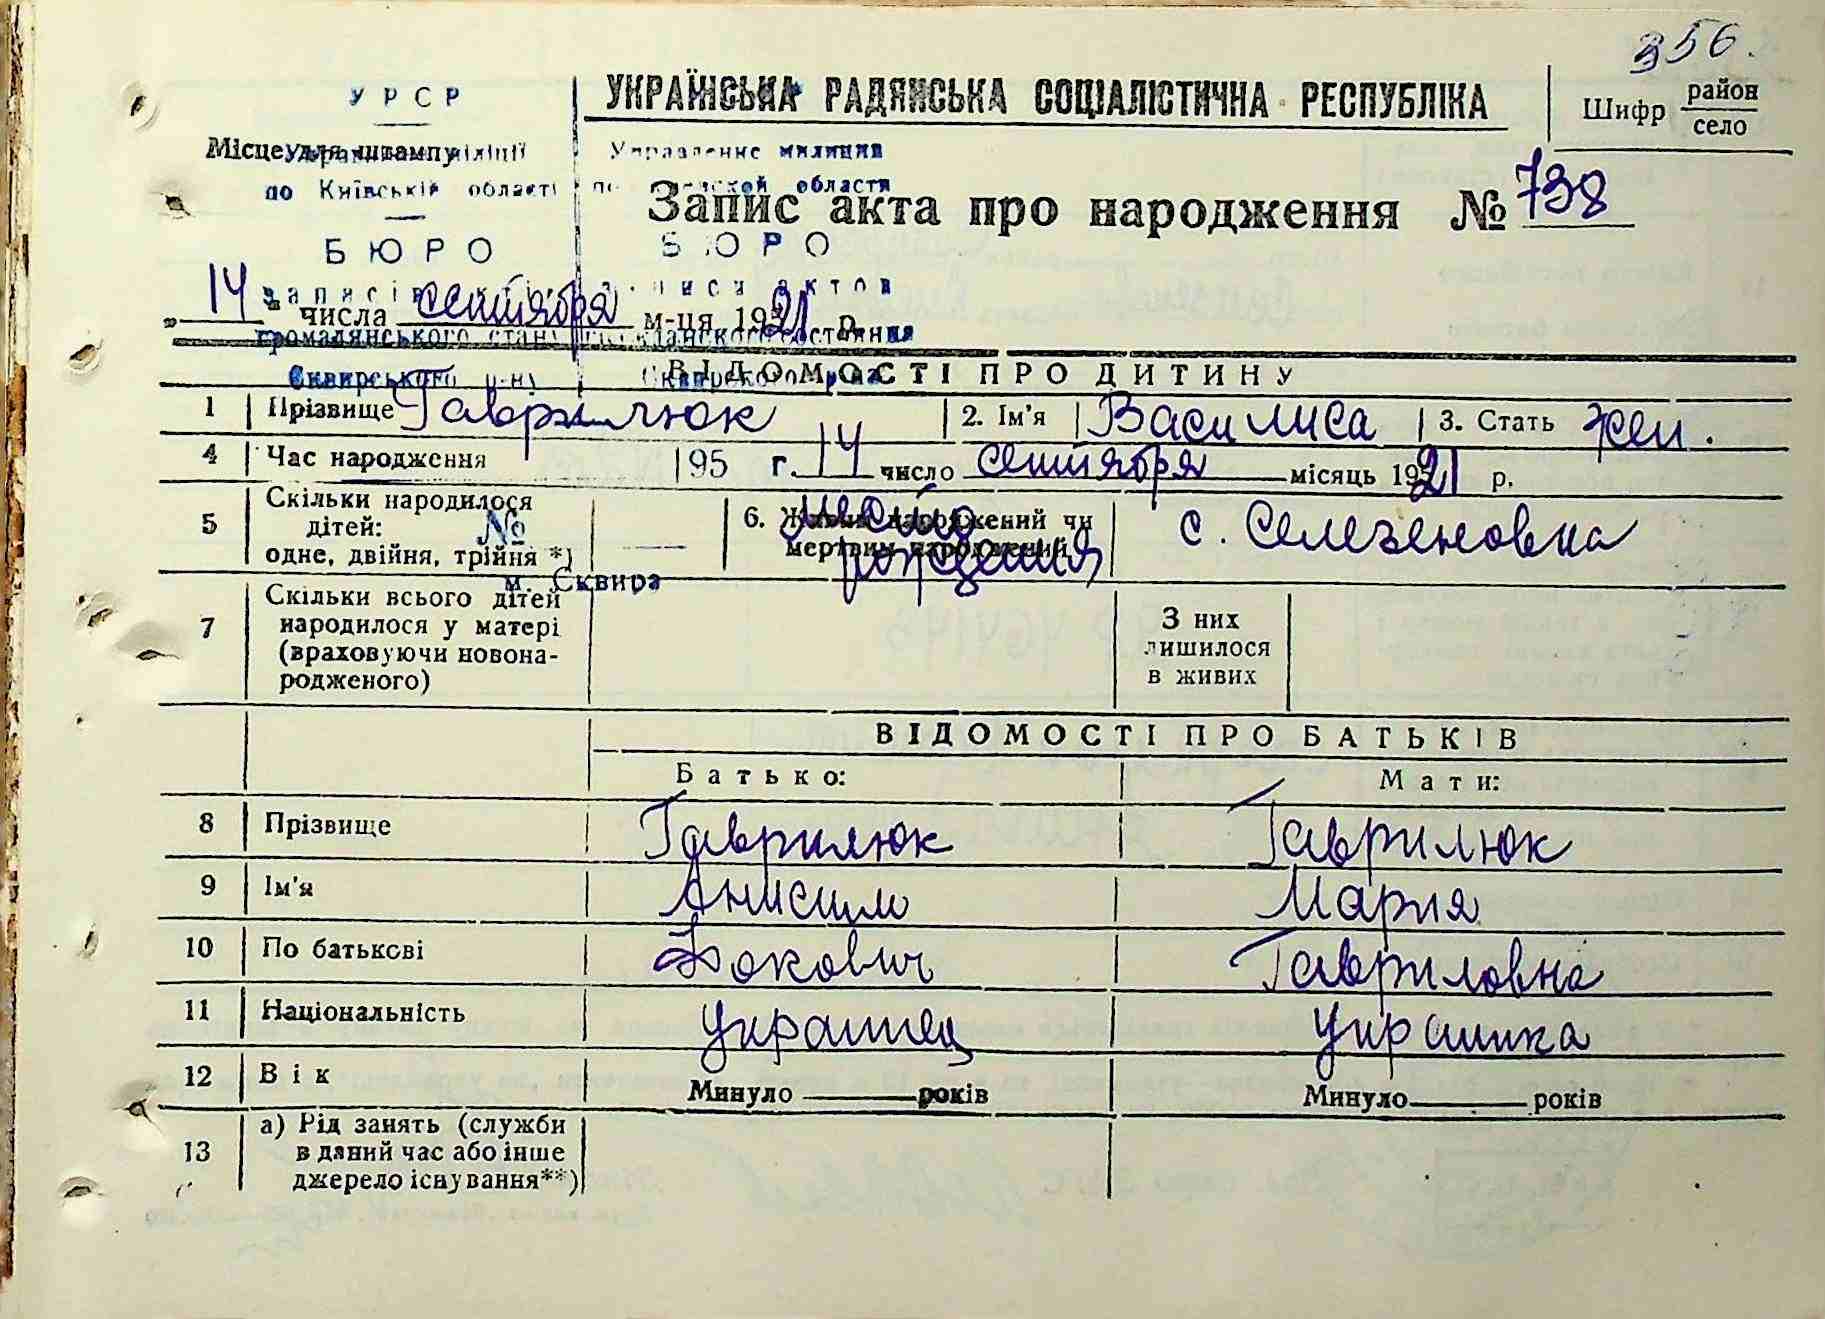 356.
УРСР
УКРАЇНСЬКА РАДЯНСЬКА СОЦІАЛІСТИЧНА РЕСПУБЛІКА
Шифр район
село
Місце для штампу
Управление милиции
по Київській області
области
Запис акта про народження № 738
БЮРО БЮРО
„14“ числа сентября м-ця 1921 р.
громадянського стану
Сквирського р-ну
ВІДОМОСТІ ПРО ДИТИНУ
1 Прізвище Гаврилюк 2. Ім'я Василиса 3. Стать жен.
4 Час народження 195 г. 14 число сентября місяць 1921 р.
5 Скільки народилося дітей: одне, двійня, трійня *) — 6. Живим народжений чи мертвим народжений место рождения с. Селезеновка
№
м. Сквира
7 Скільки всього дітей народилося у матері (враховуючи новонародженого) З них лишилося в живих
ВІДОМОСТІ ПРО БАТЬКІВ
Батько: Мати:
8 Прізвище Гаврилюк Гаврилюк
9 Ім'я Анисим Мария
10 По батькові Фокович Гавриловна
11 Національність украинец украинка
12 Вік Минуло ——— років Минуло ——— років
13 а) Рід занять (служби в даний час або інше джерело існування**)